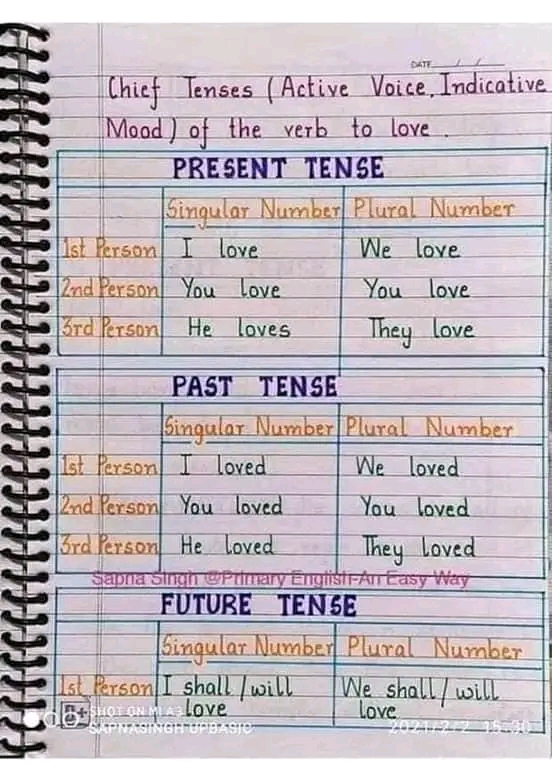 DATE / /
Chief Tenses (Active Voice, Indicative
Mood) of the verb to love.
PRESENT TENSE
Singular Number Plural Number
1st Person I love We love
2nd Person You love You love
3rd Person He loves They love
PAST TENSE
Singular Number Plural Number
1st Person I loved We loved
2nd Person You loved You loved
3rd Person He loved They loved
Sapna Singh @Primary English-An Easy Way
FUTURE TENSE
Singular Number Plural Number
1st Person I shall/will We shall/will
love love
SHOT ON MI A3
SAPNASINGH UPBASIC
2021/2/2 15:30